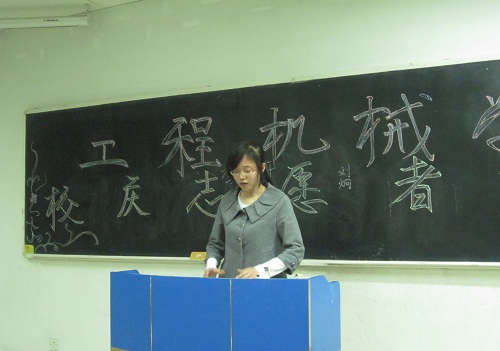 工程机械学
校庆志愿者
刘炯